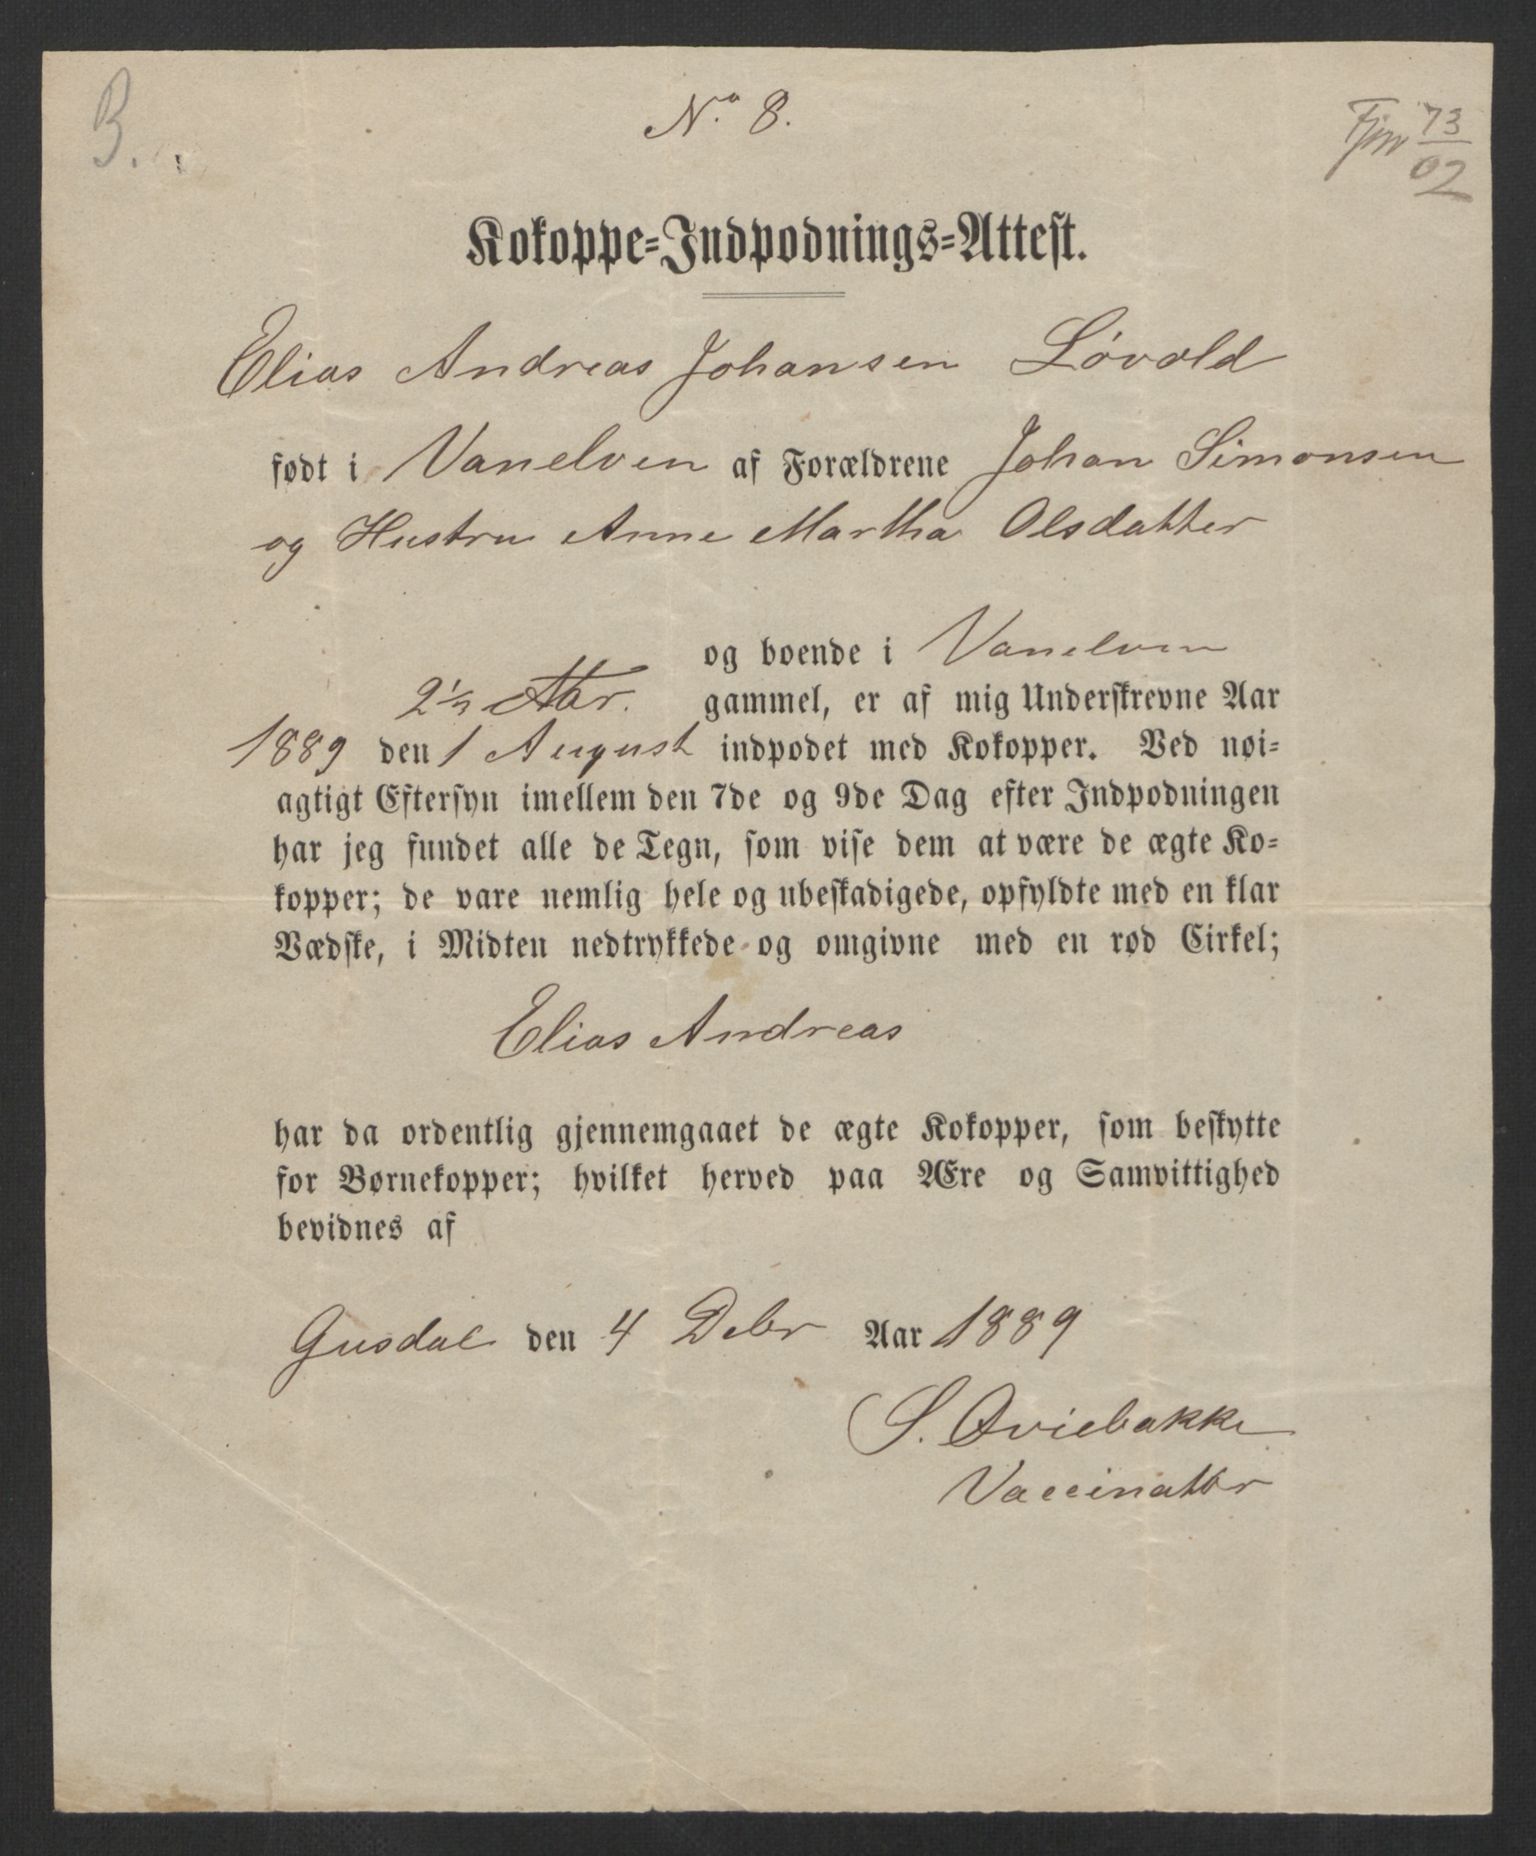 B.
No 8.
Fjm 73
02
Kokoppe-Indpodnings-Attest.
Elias Andreas Johansen Løvold
født i Vanelven af Forældrene Johan Simonsen
og Hustru Anne Martha Olsdatter
og boende i Vanelven
2½ Aar. gammel, er af mig Underskrevne Aar
1889 den 1 August indpodet med Kokopper. Ved nøi-
agtigt Eftersyn imellem den 7de og 9de Dag efter Indpodningen
har jeg fundet alle de Tegn, som vise dem at være de ægte Ko-
kopper; de vare nemlig hele og ubeskadigede, opfyldte med en klar
Vædske, i Midten nedtrykkede og omgivne med en rød Cirkel;
Elias Andreas
har da ordentlig gjennemgaaet de ægte Kokopper, som beskytte
for Børnekopper; hvilket herved paa Ære og Samvittighed
bevidnes af
Gusdal den 4 Debr Aar 1889
S. Øviebakke
Vaccinatør